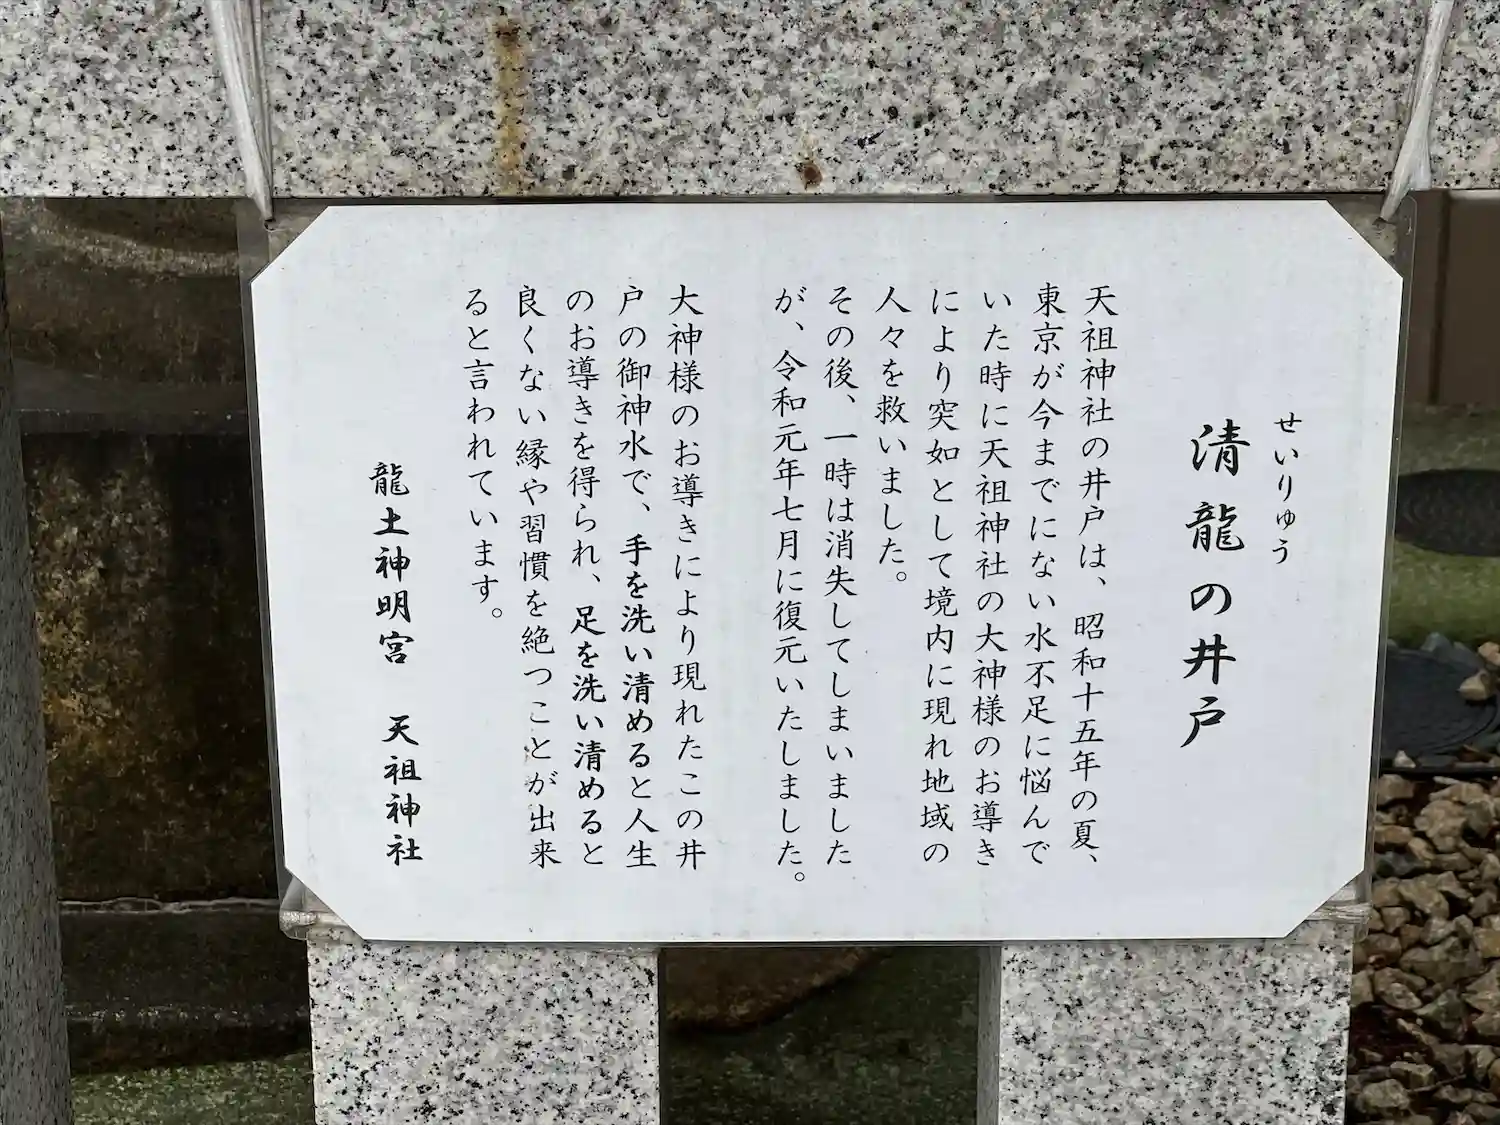 せいりゅう
清龍の井戸
天祖神社の井戸は、昭和十五年の夏、
東京が今までにない水不足に悩んで
いた時に天祖神社の大神様のお導き
により突如として境内に現れ地域の
人々を救いました。
その後、一時は消失してしまいました
が、令和元年七月に復元いたしました。
大神様のお導きにより現れたこの井
戸の御神水で、手を洗い清めると人生
のお導きを得られ、足を洗い清めると
良くない縁や習慣を絶つことが出来
ると言われています。
龍土神明宮　天祖神社